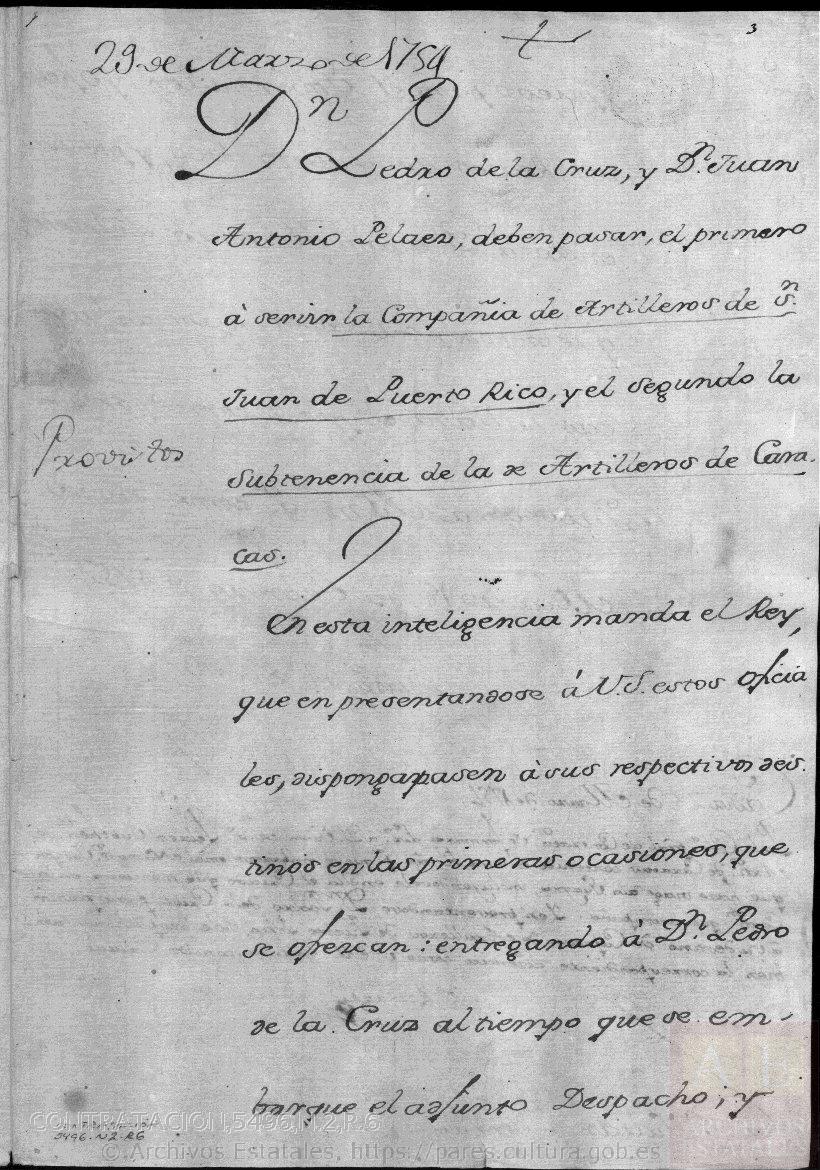 3
29 de Marzo de 1754
Dn Pedro de la Cruz, y Dn. Juan
Antonio Pelaez, deben pasar, el primero
à servir la Compañia de Artilleros de Sn.
Juan de Puerto Rico, y el segundo la
Subtenencia de la de Artilleros de Cara-
cas.
Provistos
En esta inteligencia manda el Rey,
que en presentandose á V.S. estos oficia
les, disponga pasen à sus respectivos des-
tinos en las primeras ocasiones, que
se ofrezcan: entregando á Dn. Pedro
de la Cruz al tiempo que se em-
barque el adjunto Despacho; y
CONTRATACION,5496,N.2,R.6
5496.N2.R6
© Archivos Estatales, https://pares.cultura.gob.es